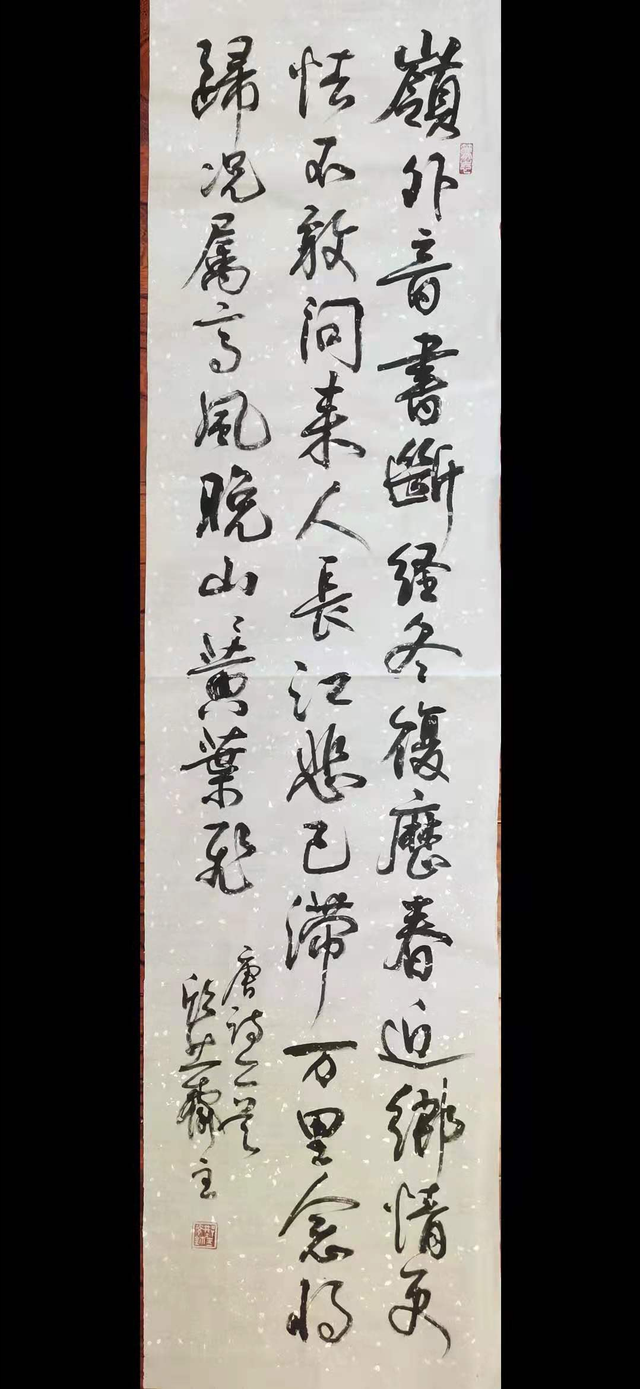 嶺外音書斷経冬復歷春近鄉情更
怯不敢問来人長江悲已滞万里念将
歸况属高風晚山山黄葉飛
唐詩二首
齋主